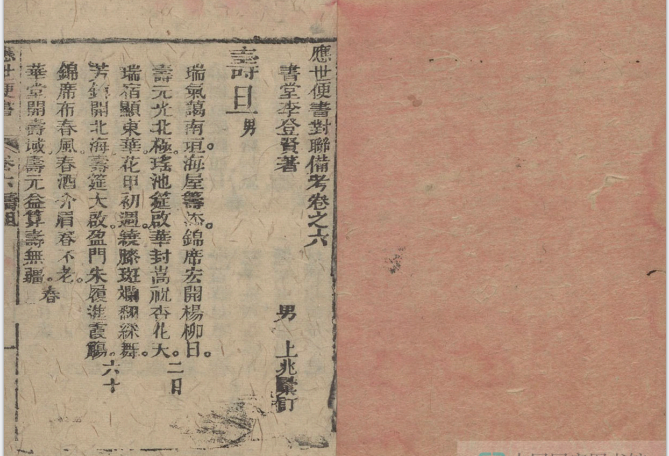 應世便書對聯備考卷之六
書堂李登賢著　男　上兆纂訂
壽日男
瑞氣藹南垣海屋籌添錦席宏開楊柳日
壽元光北極瑤池筵啟華封嵩祝杏花天二日
瑞宿顯東華花甲初週繞膝斑斕翩綵舞
芳錦開北海壽筵大啟盈門朱履進霞觴六十
錦席布春風春酒介眉春不老
華堂開壽域壽元益算壽無疆春
應世便書　卷六壽誕　一